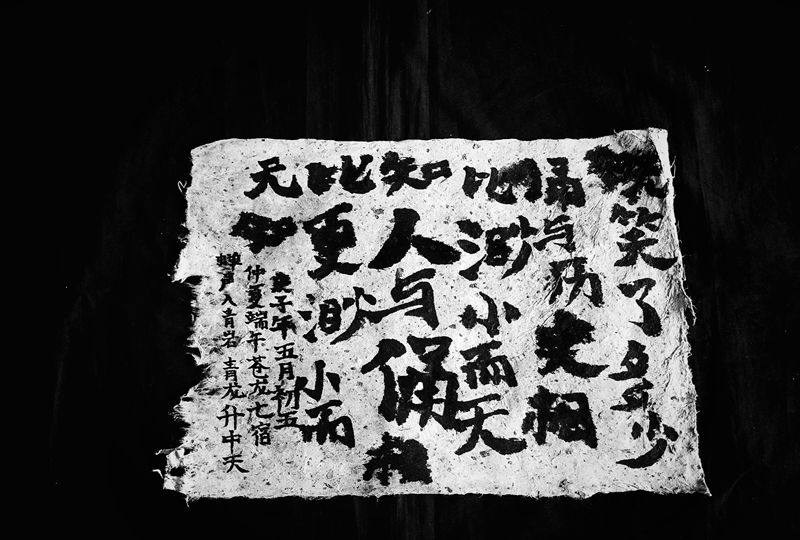 笑了多少
俑与历史相
比渺小而无
知人与俑相
比更渺小而
无知
庚子年五月初五
仲夏端午苍龙七宿
蝉入青岩 青龙升中天